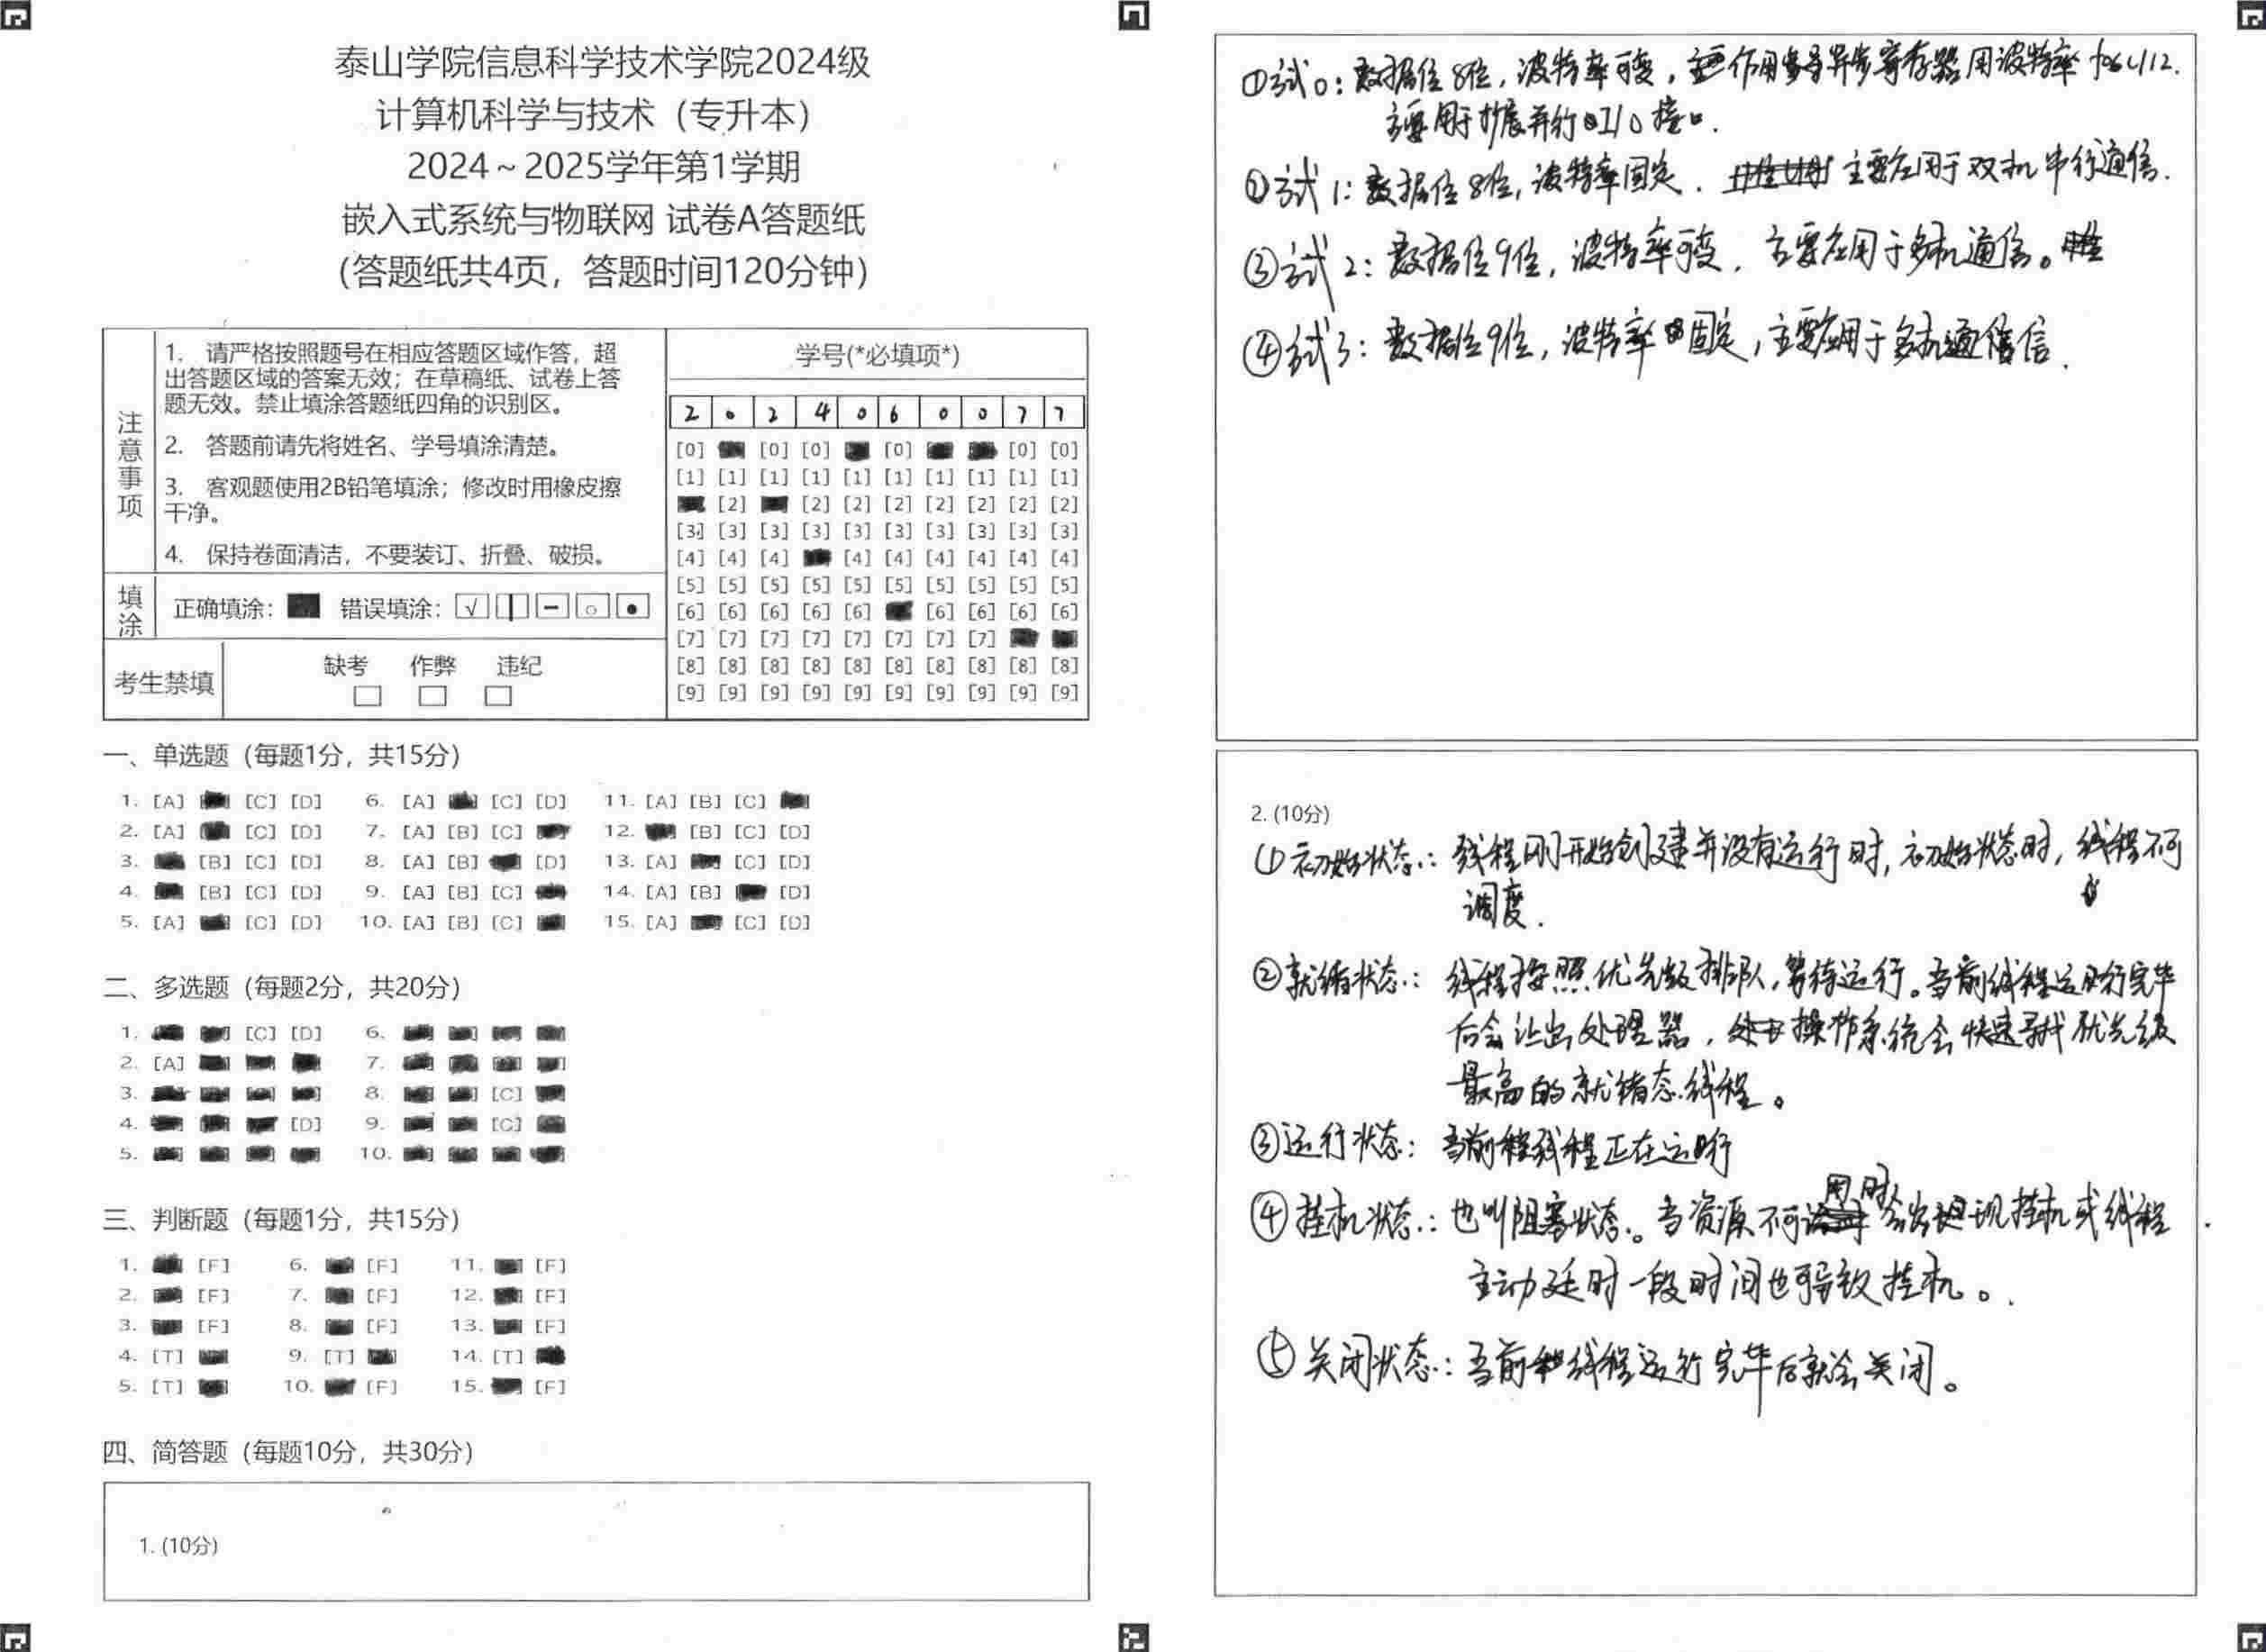 泰山学院信息科学技术学院2024级
计算机科学与技术（专升本）
2024～2025学年第1学期
嵌入式系统与物联网 试卷A答题纸
（答题纸共4页，答题时间120分钟）
注意事项
1. 请严格按照题号在相应答题区域作答，超
出答题区域的答案无效；在草稿纸、试卷上答
题无效。禁止填涂答题纸四角的识别区。
2. 答题前请先将姓名、学号填涂清楚。
3. 客观题使用2B铅笔填涂；修改时用橡皮擦
干净。
4. 保持卷面清洁，不要装订、折叠、破损。
填涂
正确填涂： 错误填涂：
考生禁填
缺考 作弊 违纪
学号(*必填项*)
2 0 2 4 0 6 0 0 7 7
[0] [0] [0] [0] [0] [0]
[1] [1] [1] [1] [1] [1] [1] [1] [1] [1]
[2] [2] [2] [2] [2] [2] [2] [2]
[3] [3] [3] [3] [3] [3] [3] [3] [3] [3]
[4] [4] [4] [4] [4] [4] [4] [4] [4]
[5] [5] [5] [5] [5] [5] [5] [5] [5] [5]
[6] [6] [6] [6] [6] [6] [6] [6] [6]
[7] [7] [7] [7] [7] [7] [7] [7]
[8] [8] [8] [8] [8] [8] [8] [8] [8] [8]
[9] [9] [9] [9] [9] [9] [9] [9] [9] [9]
一、单选题（每题1分，共15分）
1. [A] [C] [D] 6. [A] [C] [D] 11. [A] [B] [C]
2. [A] [C] [D] 7. [A] [B] [C] 12. [B] [C] [D]
3. [B] [C] [D] 8. [A] [B] [D] 13. [A] [C] [D]
4. [B] [C] [D] 9. [A] [B] [C] 14. [A] [B] [D]
5. [A] [C] [D] 10. [A] [B] [C] 15. [A] [C] [D]
二、多选题（每题2分，共20分）
1. [C] [D] 6.
2. [A] 7.
3. 8. [C]
4. [D] 9. [C]
5. 10.
三、判断题（每题1分，共15分）
1. [F] 6. [F] 11. [F]
2. [F] 7. [F] 12. [F]
3. [F] 8. [F] 13. [F]
4. [T] 9. [T] 14. [T]
5. [T] 10. [F] 15. [F]
四、简答题（每题10分，共30分）
1. (10分)
①式0：数据位8位，波特率可变，主要作用 寄存器用波特率fosc/12.
主要用于扩展并行I/O接口.
②式1：数据位8位，波特率固定. 主要应用于双机串行通信.
③式2：数据位9位，波特率可变，主要应用于多机通信。
④式3：数据位9位，波特率固定，主要应用于多机通信.
2. (10分)
①初始状态：线程刚开始创建并没有运行时，初始状态时，线程不可
调度.
②就绪状态：线程按照优先级排队，等待运行。当前线程运行完毕
后会让出处理器，操作系统会快速寻找优先级
最高的就绪态线程。
③运行状态：当前线程正在运行
④挂机状态：也叫阻塞状态。当资源不可用时会出现挂机或线程
主动延时一段时间也可导致挂机。
⑤关闭状态：当前线程运行完毕后就会关闭。